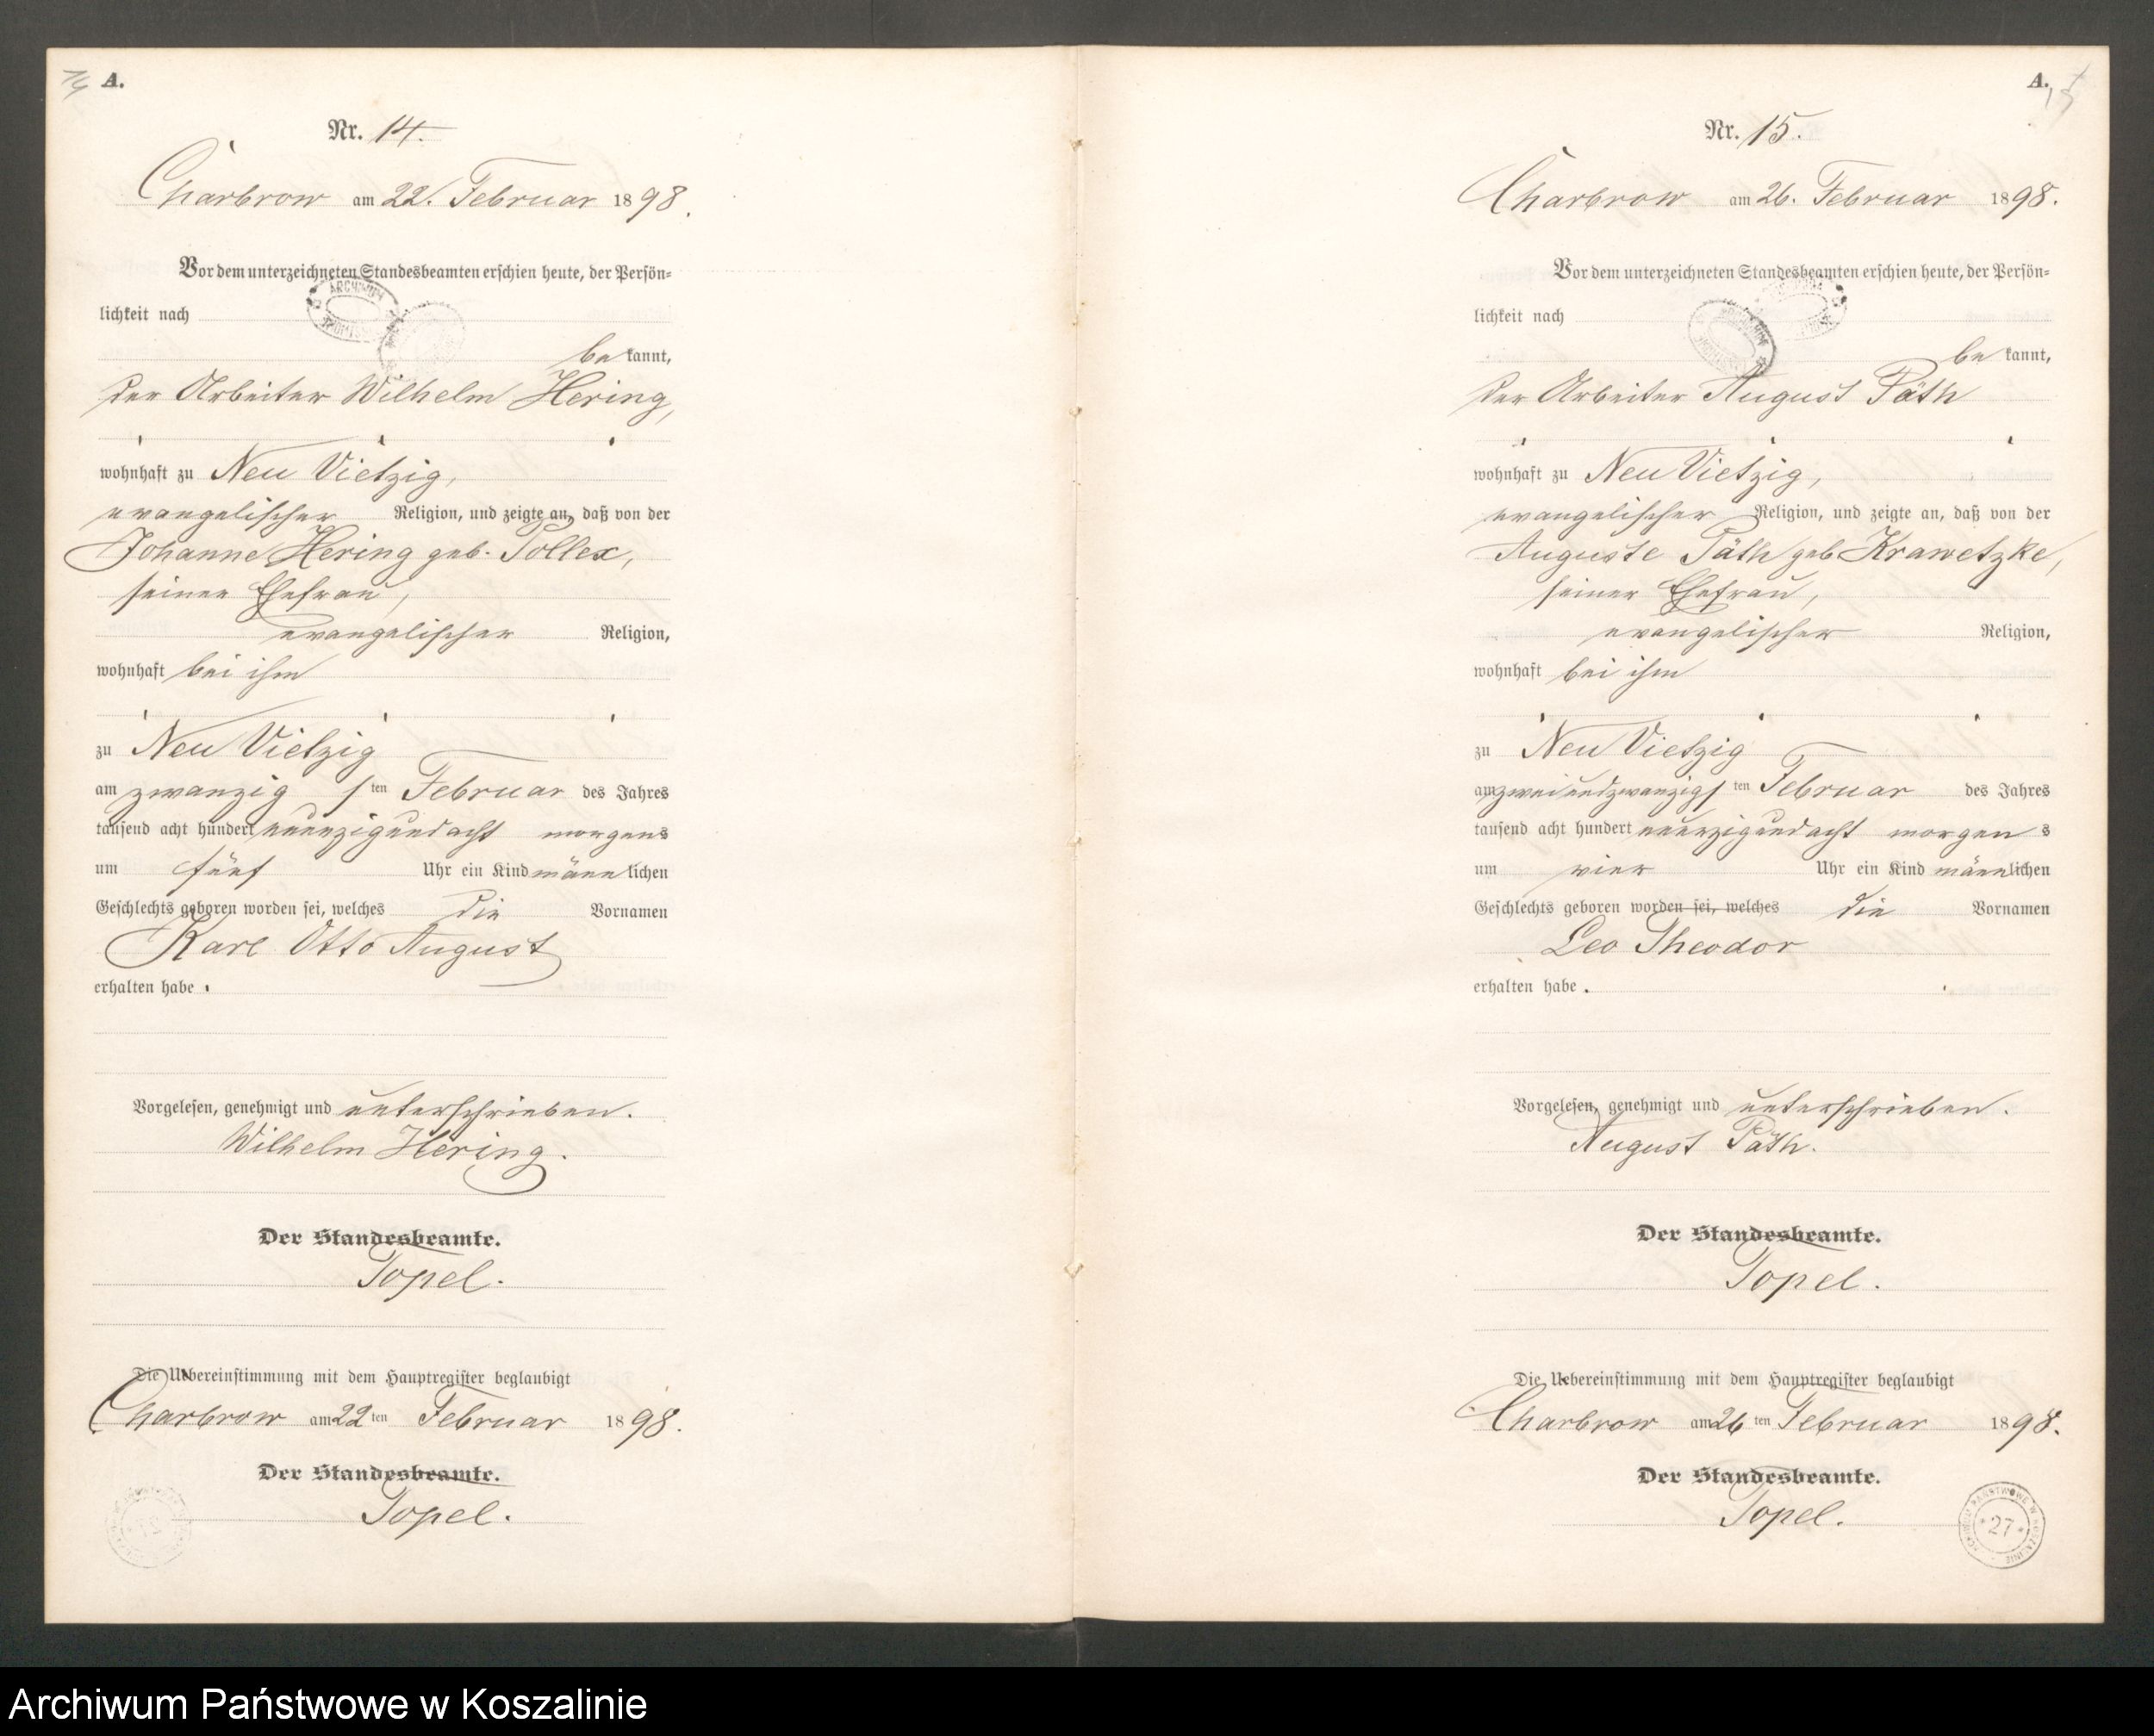 A.
Nr. 14.
Charbrow am 22. Februar 1898.
Vor dem unterzeichneten Standesbeamten erschien heute, der Persön=
lichkeit nach
be kannt,
der Arbeiter Wilhelm Hering,
wohnhaft zu Neu Vietzig,
evangelischer Religion, und zeigte an, daß von der
Johanne Hering geb. Pollex,
seiner Ehefrau,
evangelischer Religion,
wohnhaft bei ihm
zu Neu Vietzig
am zwanzigsten Februar des Jahres
tausend acht hundert neunzigundacht morgens
um fünf Uhr ein Kind männlichen
Geschlechts geboren worden sei, welches die Vornamen
Karl Otto August
erhalten habe.
Vorgelesen, genehmigt und unterschrieben.
Wilhelm Hering.
Der Standesbeamte.
Topel.
Die Uebereinstimmung mit dem Hauptregister beglaubigt
Charbrow am 22ten Februar 1898.
Der Standesbeamte.
Topel.
A.
15
Nr. 15.
Charbrow am 26. Februar 1898.
Vor dem unterzeichneten Standesbeamten erschien heute, der Persön=
lichkeit nach
be kannt,
der Arbeiter August Päth
wohnhaft zu Neu Vietzig,
evangelischer Religion, und zeigte an, daß von der
Auguste Päth geb. Krawetzke,
seiner Ehefrau,
evangelischer Religion,
wohnhaft bei ihm
zu Neu Vietzig
am zweiundzwanzigsten Februar des Jahres
tausend acht hundert neunzigundacht morgens
um vier Uhr ein Kind männlichen
Geschlechts geboren worden sei, welches die Vornamen
Leo Theodor
erhalten habe.
Vorgelesen, genehmigt und unterschrieben.
August Päth.
Der Standesbeamte.
Topel.
Die Uebereinstimmung mit dem Hauptregister beglaubigt
Charbrow am 26ten Februar 1898.
Der Standesbeamte.
Topel.
ARCHIWUM PAŃSTWOWE W KOSZALINIE
*27*
Archiwum Państwowe w Koszalinie